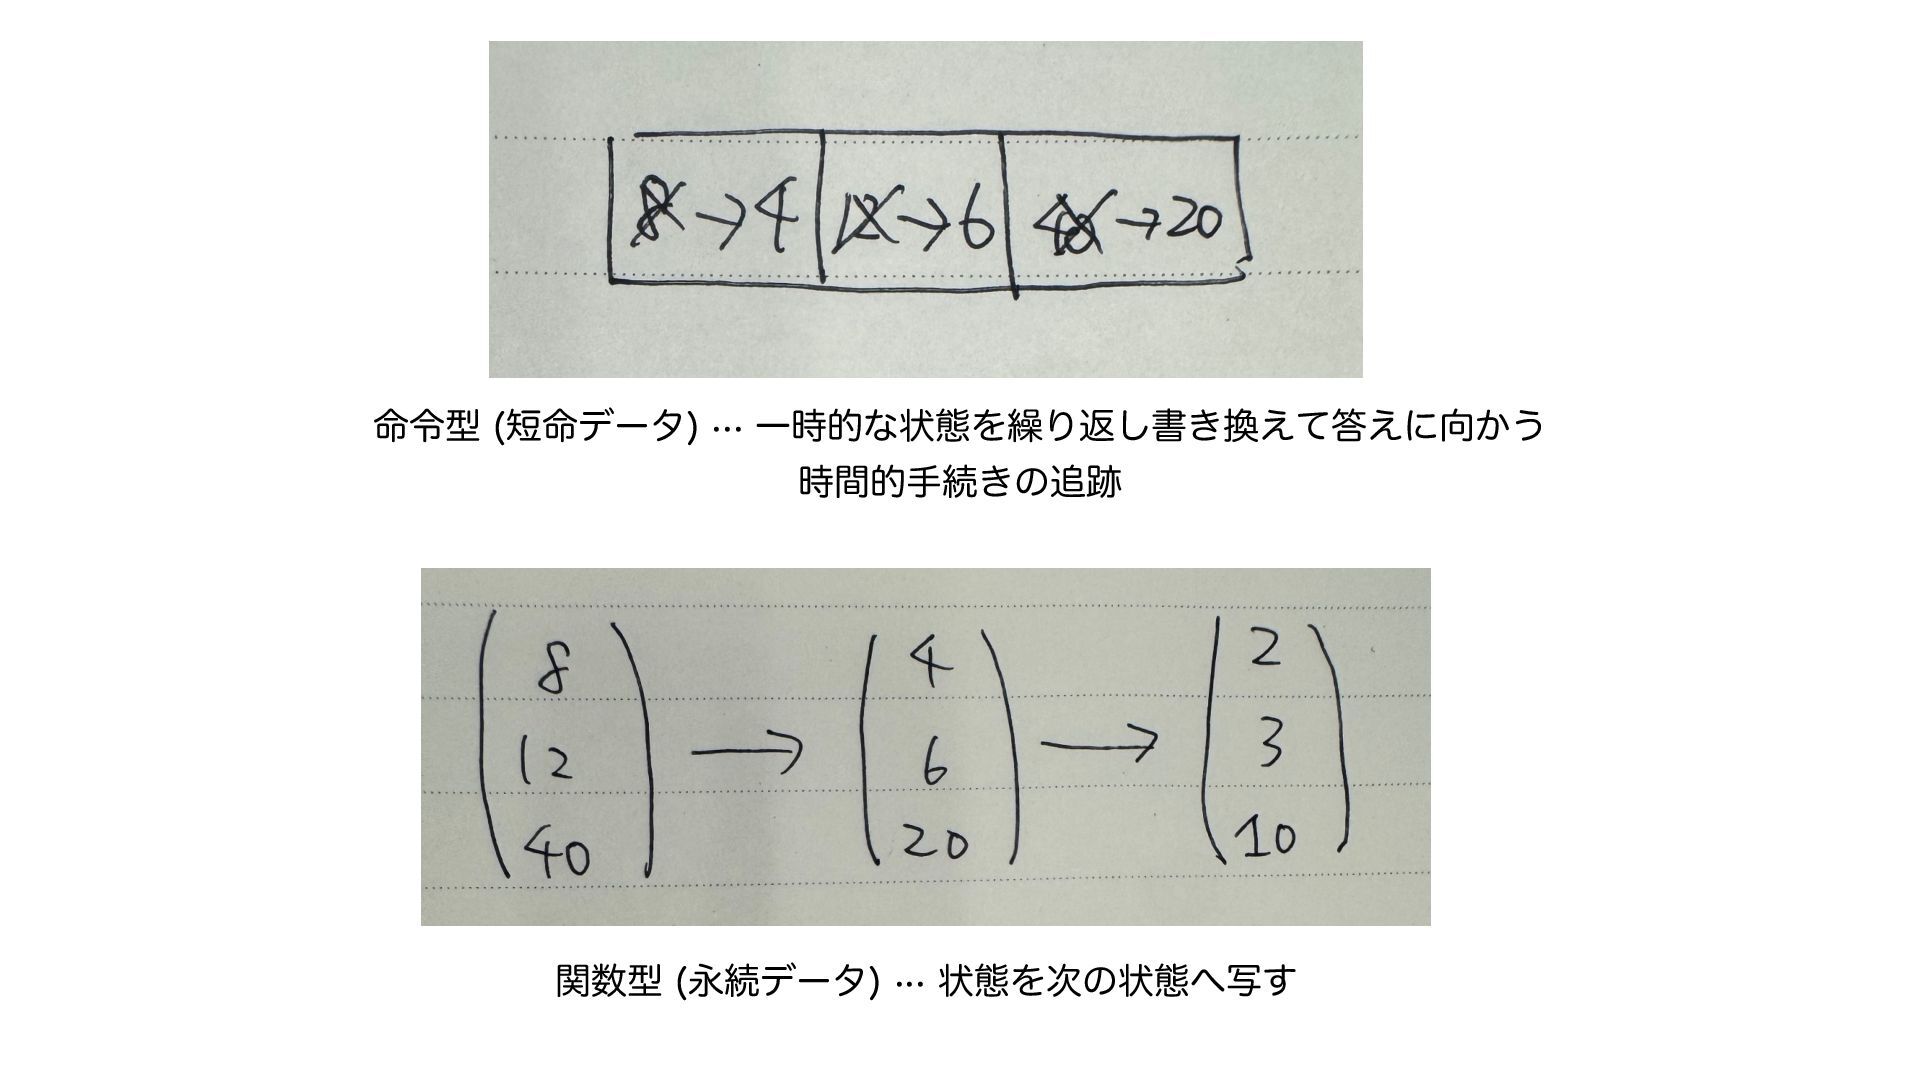 8 → 4 12 → 6 40 → 20
命令型 (短命データ) … 一時的な状態を繰り返し書き換えて答えに向かう
時間的手続きの追跡
8 4 2
12 → 6 → 3
40 20 10
関数型 (永続データ) … 状態を次の状態へ写す